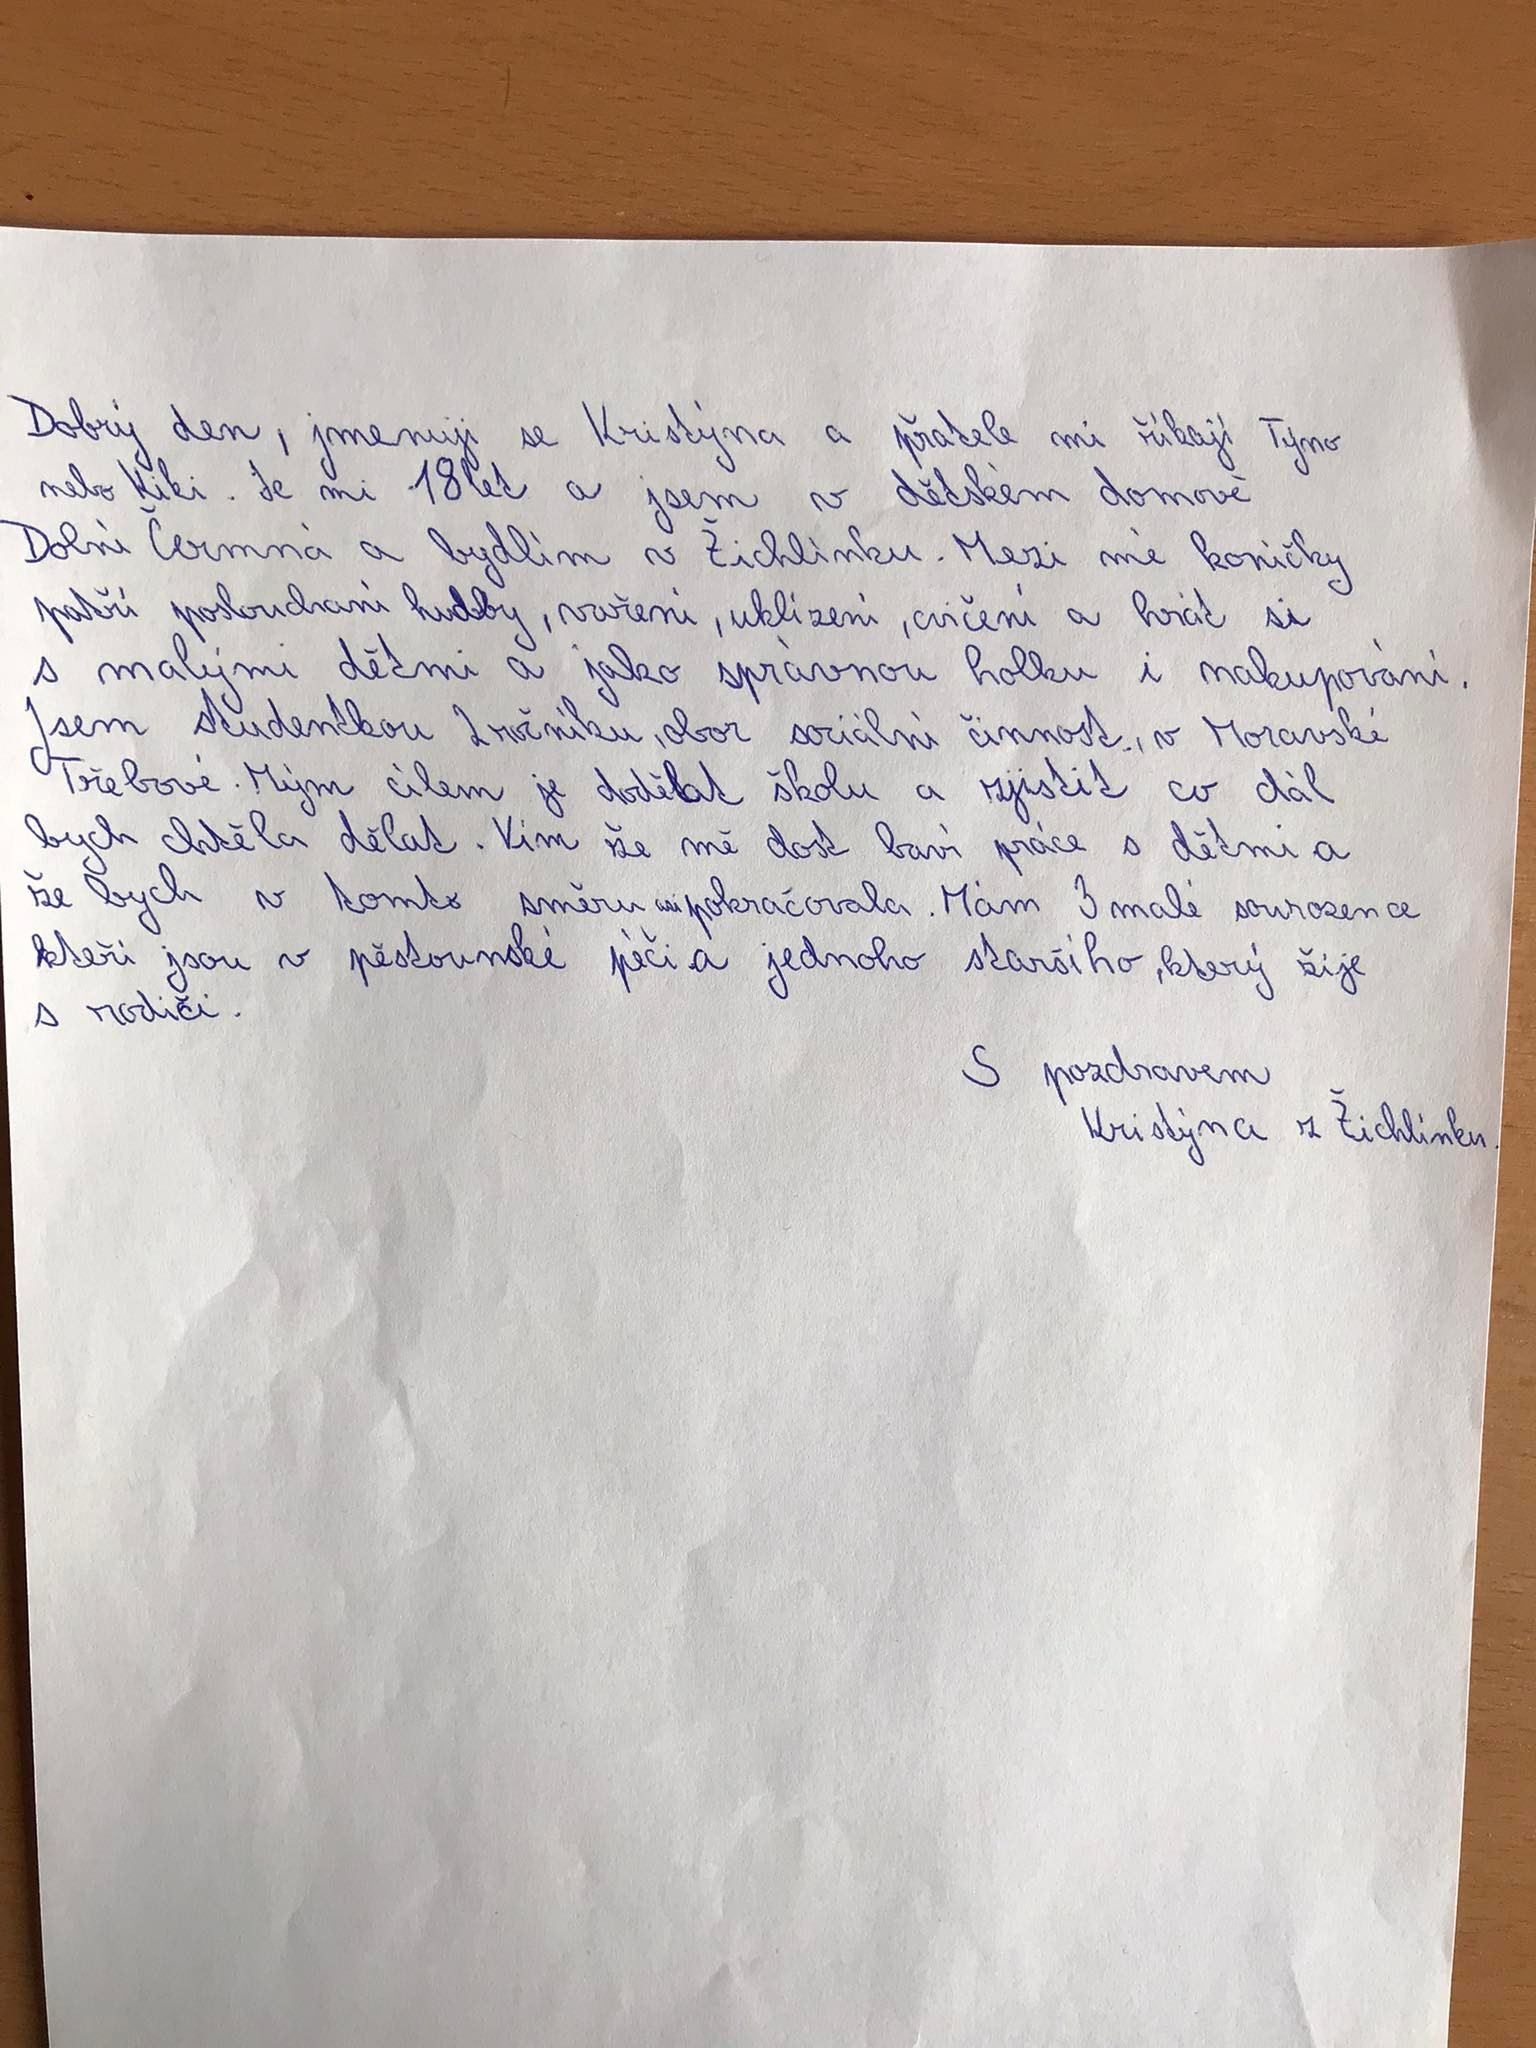 Dobrý den, jmenuji se Kristýna a přatele mi říkají Týno
nebo Kiki. Je mi 18 let a jsem v dětském domově
Dolní Čermná a bydlím v Žichlínku. Mezi mé koníčky
patří poslouchaní hudby, vaření, uklízení, cvičení a hrát si
s malými dětmi a jako správnou holku i nakupování.
Jsem studentkou 2 ročníku, obor sociální činnost, v Moravské
Třebové. Mým cílem je dodělat školu a zjistit co dál
bych chtěla dělat. Vím že mě dost baví práce s dětmi a
že bych v tomto směru pokračovala. Mám 3 malé sourozence
kteří jsou v pěstounské péči a jednoho staršího, který žije
s rodiči.
S pozdravem
Kristýna z Žichlínku.